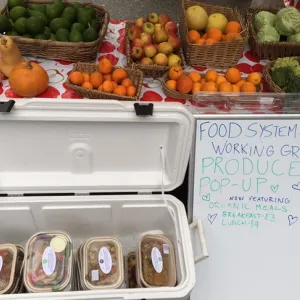 FOOD SYSTEM
WORKING GR
PRODUCE
POP-UP
NOW FEATURING
ORGANIC MEALS
BREAKFAST-$3
LUNCH-$4